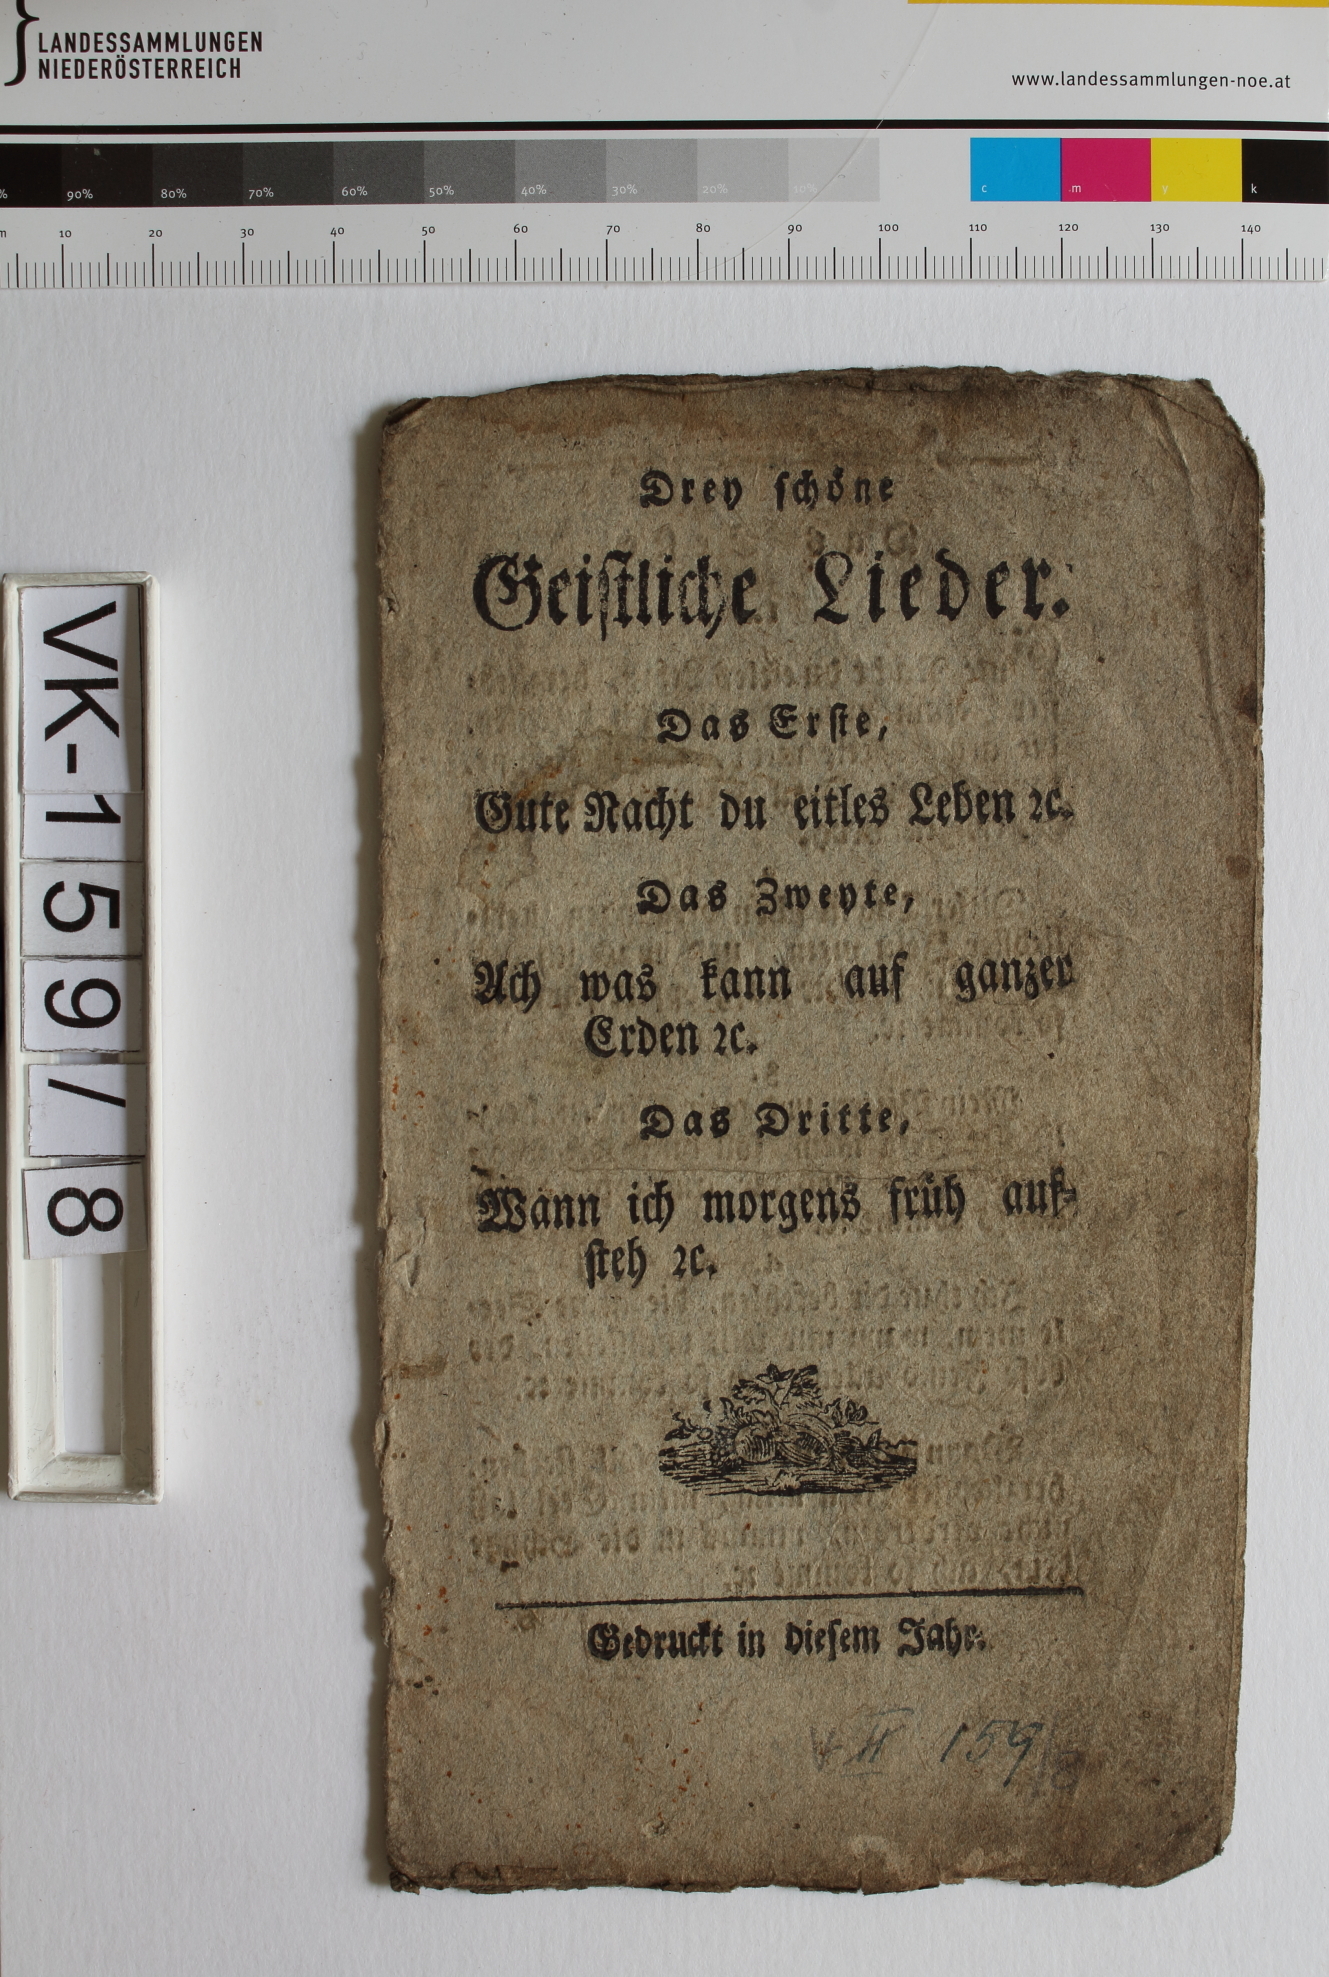 LANDESSAMMLUNGEN
NIEDERÖSTERREICH
www.landessammlungen-noe.at
90% 80% 70% 60% 50% 40% 30% 20% 10% c m y k
10 20 30 40 50 60 70 80 90 100 110 120 130 140
VK-1597/8
Drey schöne
Geistliche Lieder.
Das Erste,
Gute Nacht du eitles Leben ꝛc.
Das Zweyte,
Ach was kann auf ganzer
Erden ꝛc.
Das Dritte,
Wann ich morgens früh auf-
steh ꝛc.
Gedruckt in diesem Jahr.
V II 159/8